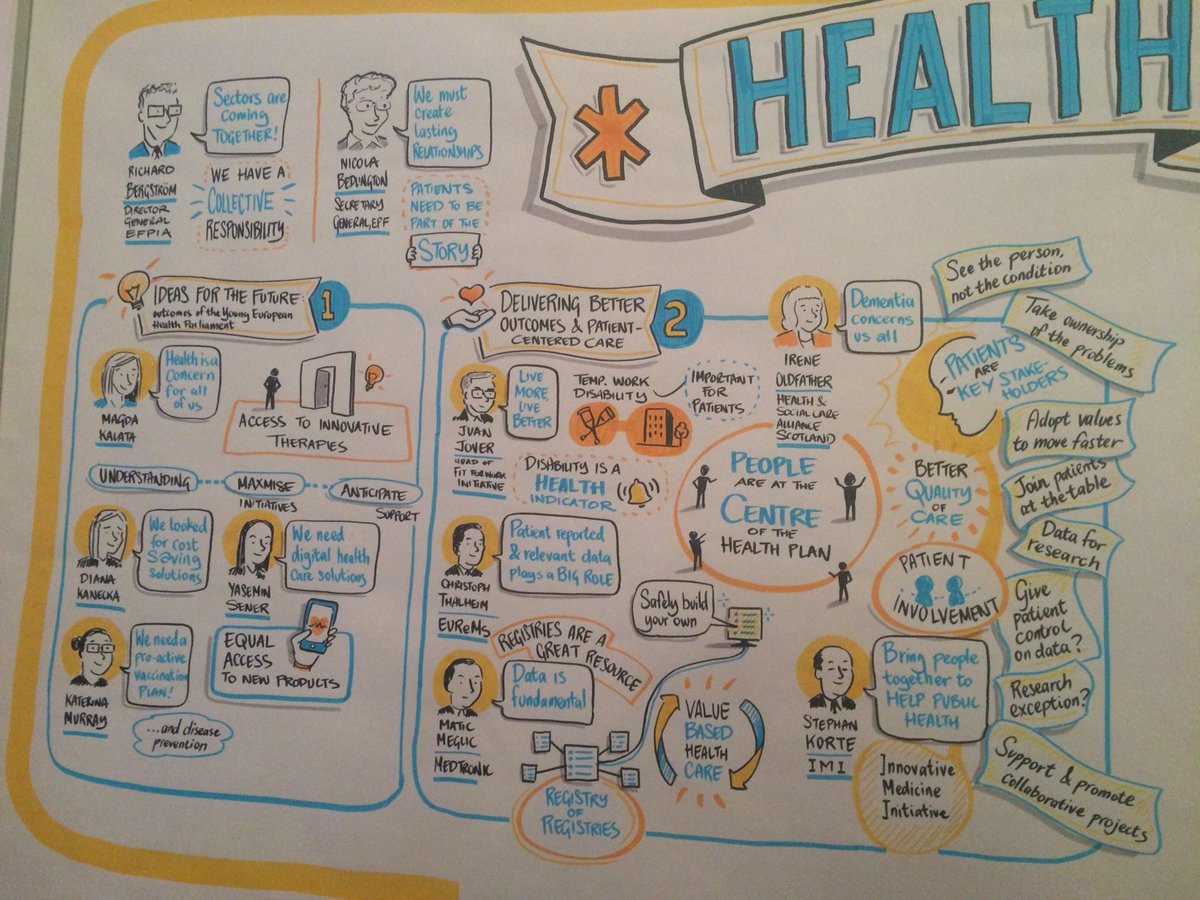 HEALTH
Sectors are
coming
TOGETHER!
RICHARD
BERGSTRÖM
DIRECTOR
GENERAL
EFPIA
WE HAVE A
COLLECTIVE
RESPONSIBILITY
We must
create
lasting
RELATIONSHIPS
NICOLA
BEDLINGTON
SECRETARY
GENERAL, EPF
PATIENTS
NEED TO BE
PART OF THE
STORY
IDEAS FOR THE FUTURE:
outcomes of the Young European
Health Parliament
1
Health is a
concern
for all
of us
MAGDA
KALATA
ACCESS TO INNOVATIVE
THERAPIES
UNDERSTANDING
MAXMISE
INITIATIVES
ANTICIPATE
SUPPORT
We looked
for cost
saving
solutions
DIANA
KANECKA
We need
digital health
care solutions
YASEMIN
SENER
We need a
pro-active
vaccination
PLAN!
KATERINA
MURRAY
EQUAL
ACCESS
TO NEW PRODUCTS
...and disease
prevention
DELIVERING BETTER
OUTCOMES & PATIENT-
CENTERED CARE
2
LIVE
MORE,
LIVE
BETTER
JUAN
JOVER
HEAD OF
FIT FOR WORK
INITIATIVE
TEMP. WORK
DISABILITY
IMPORTANT
FOR
PATIENTS
DISABILITY IS A
HEALTH
INDICATOR
Patient reported
& relevant data
plays a BIG ROLE
CHRISTOPH
THALHEIM
EUReMS
REGISTRIES ARE A
GREAT RESOURCE
Data is
fundamental
MATIC
MEGLIC
MEDTRONIC
REGISTRY
OF
REGISTRIES
Safely build
your own
VALUE
BASED
HEALTH
CARE
Dementia
concerns
us all
IRENE
OLDFATHER
HEALTH &
SOCIAL CARE
ALLIANCE
SCOTLAND
PEOPLE
ARE AT THE
CENTRE
OF THE
HEALTH PLAN
PATIENTS
ARE
KEY STAKE-
HOLDERS
BETTER
QUALITY
OF
CARE
PATIENT
INVOLVEMENT
Bring people
together to
HELP PUBLIC
HEALTH
STEPHAN
KORTE
IMI
Innovative
Medicine
Initiative
See the person,
not the condition
Take ownership
of the problems
Adopt values
to move faster
Join patients
at the table
Data for
research
Give
patient
control
on data?
Research
exception?
Support & promote
collaborative projects